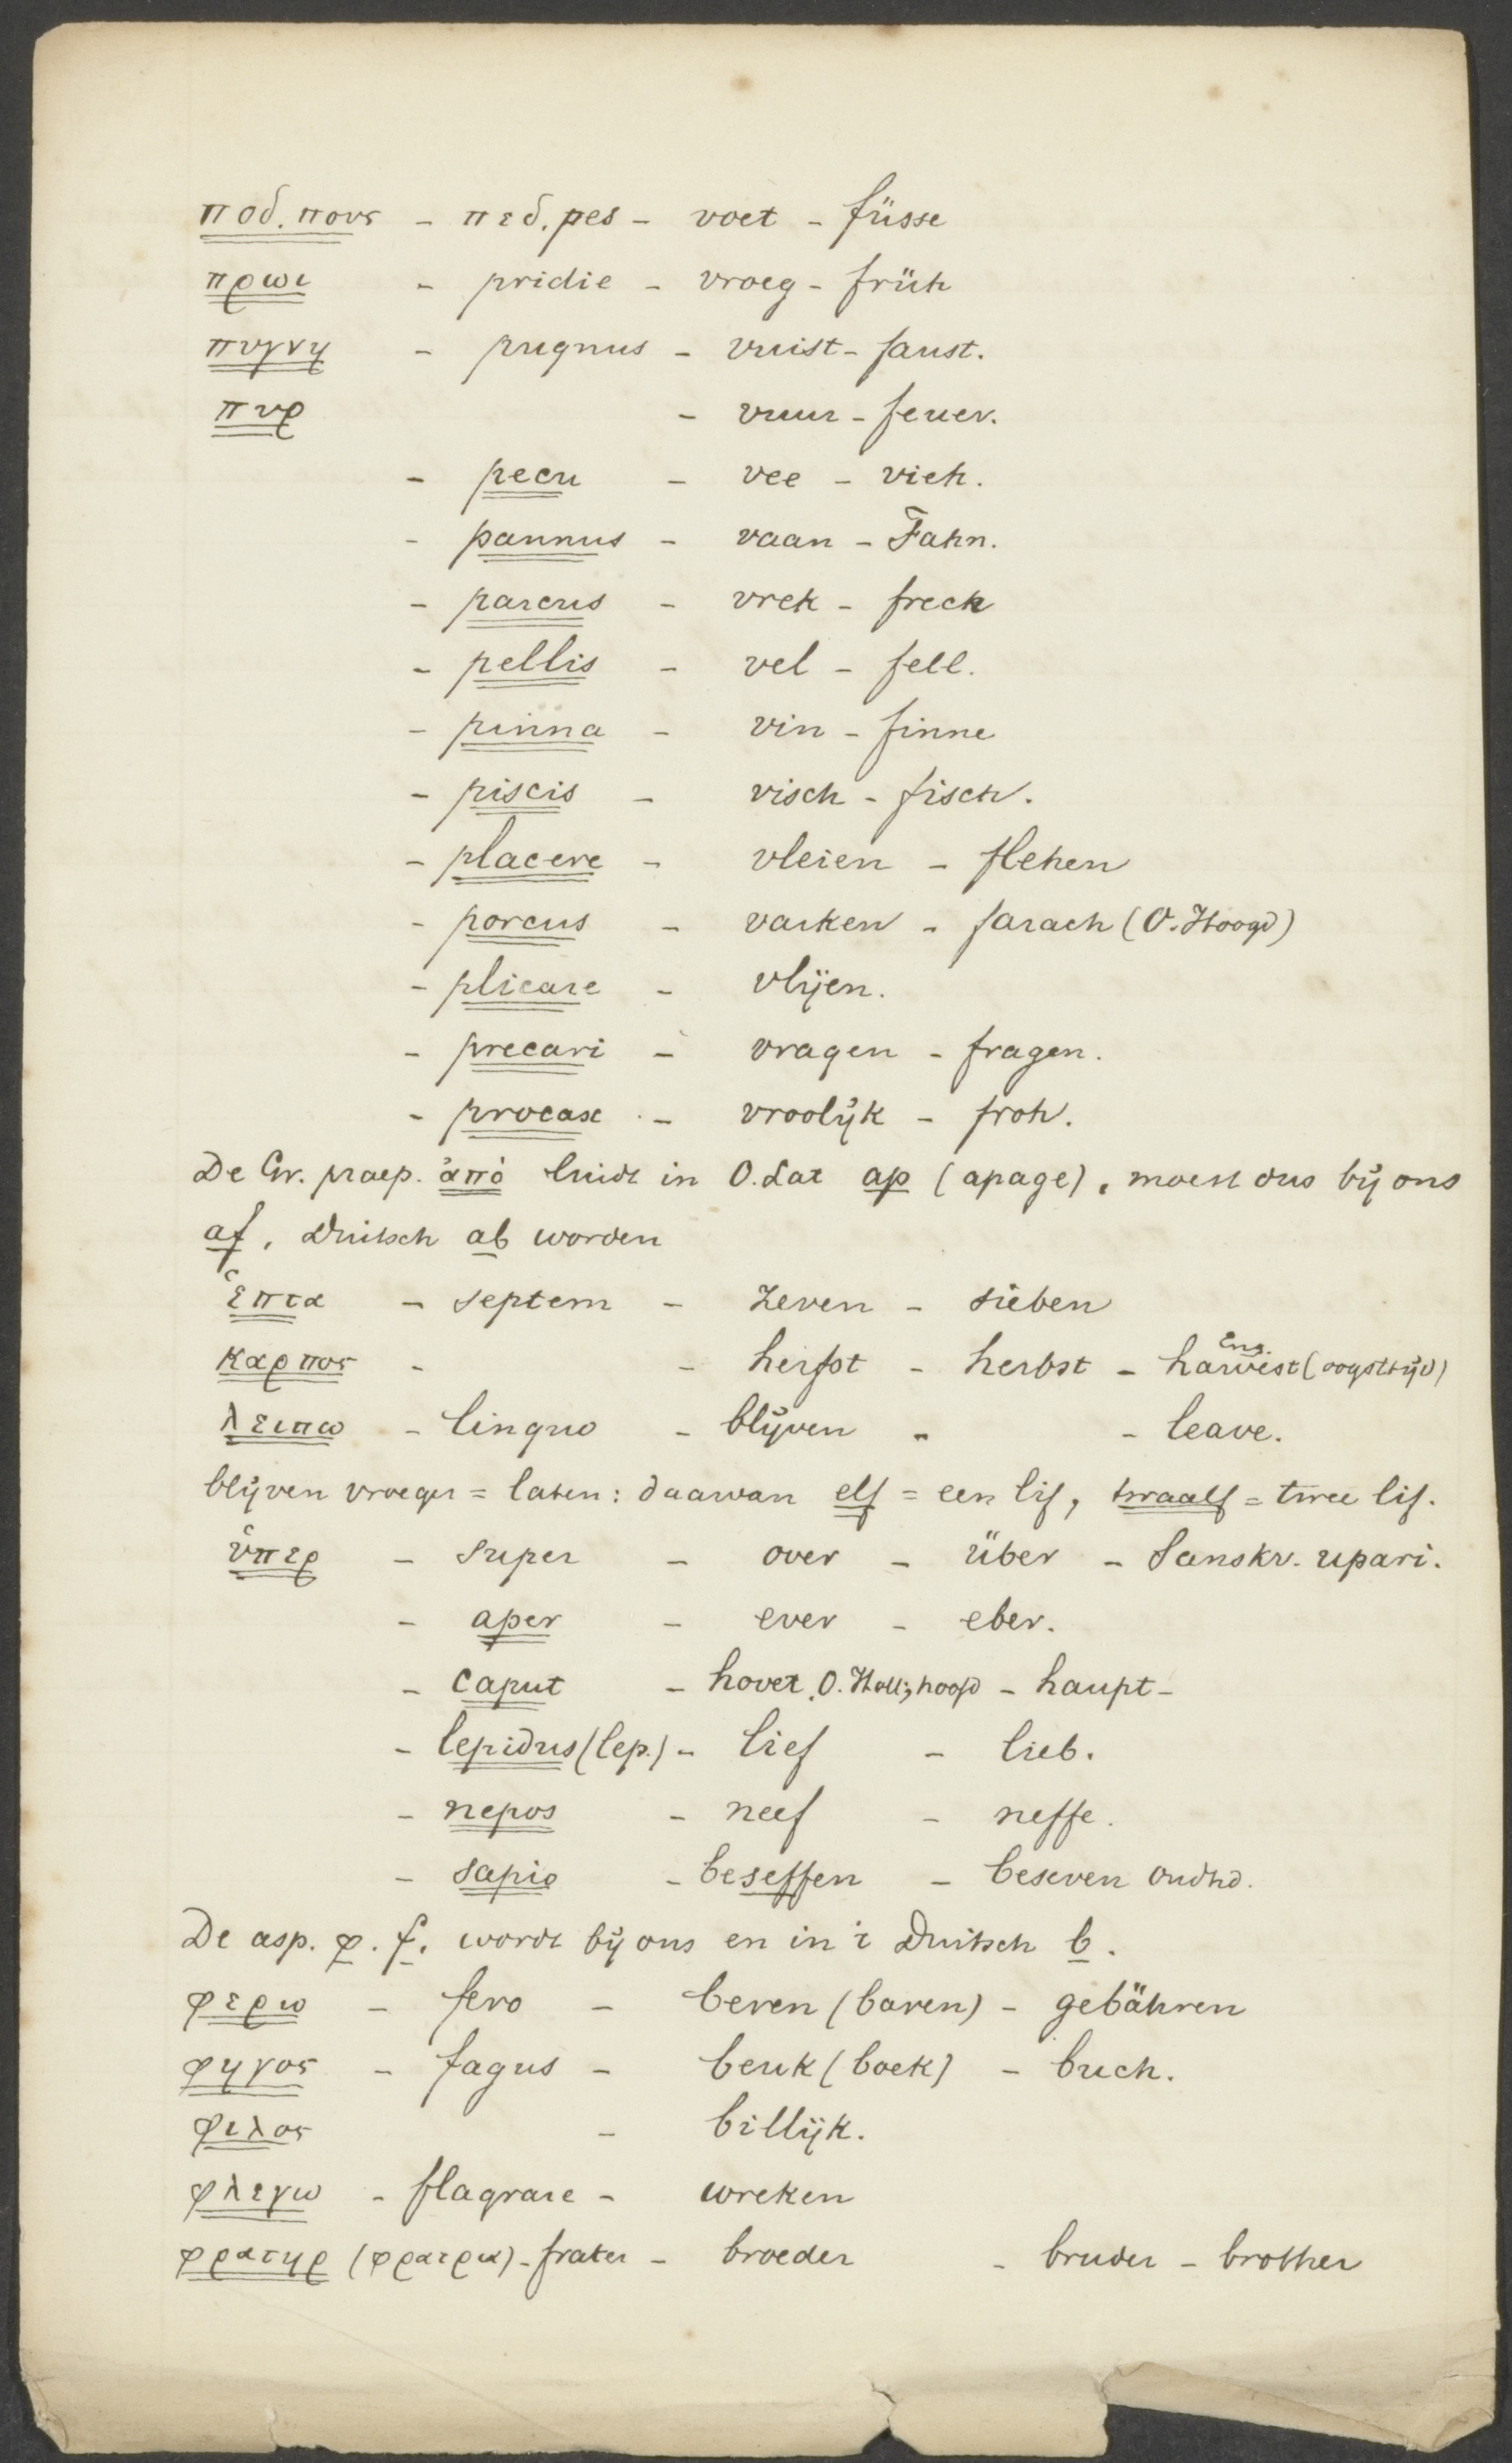 ποδ. πους - πεδ. pes - voet - füsse
πρωι - pridie - vroeg - früh
πυγνη - pugnus - vuist - faust.
πυρ - vuur - feuer.
- pecu - vee - vieh.
- pannus - vaan - Fahn.
- parcus - vrek - freck
- pellis - vel - fell.
- pinna - vin - finne
- piscis - visch - fisch.
- placere - vleien - flehen
- porcus - varken - farach (O. Hoogd)
- plicare - vlijen.
- precari - vragen - fragen.
- procax - vroolijk - froh.
De Gr. praep. ἀπὸ luidt in O. Lat ap (apage), moest dus bij ons
af, Duitsch ab worden
ἑπτα - septem - zeven - sieben
καρπος - - herfst - herbst - Eng. harvest (oogsttijd)
λειπω - linquo - blijven - - leave.
blijven vroeger = laten: daarvan elf = een lif, twaalf = twee lif.
ὑπερ - super - over - über - Sanskr. upari.
- aper - ever - eber.
- caput - hovet, O. Holl; hoofd - haupt -
- lepidus (lep.) - lief - lieb.
- nepos - neef - neffe.
- sapio - beseffen - beseven oudhd.
De asp. φ. f. wordt bij ons en in 't Duitsch b.
φερω - fero - beren (baren) - gebähren
φηγος - fagus - beuk (boek) - buch.
φιλος - billijk.
φλεγω - flagrare - wreken
φρατηρ (φρατρια) - frater - broeder - bruder - brother